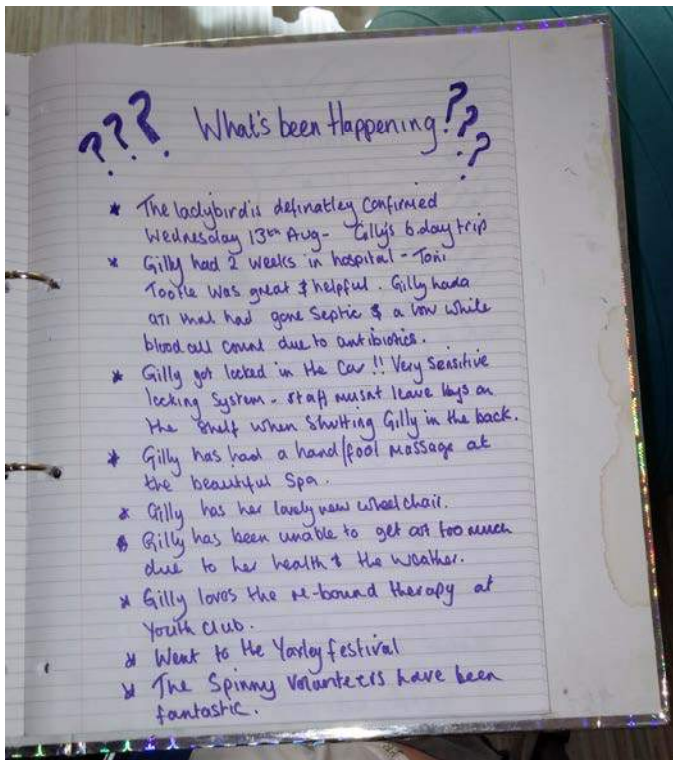 ??? What's been Happening???
* The ladybird is definatley confirmed
Wednesday 13th Aug - Gilly's 6 day trip
* Gilly had 2 weeks in hospital - Toni
Tootle was great & helpful. Gilly had a
UTI that had gone Septic & a low white
blood cell count due to antibiotics.
* Gilly got locked in the Car!! Very Sensitive
locking System - staff musnt leave keys on
the shelf when shutting Gilly in the back.
* Gilly has had a hand/foot massage at
the beautiful Spa.
* Gilly has her lovely new wheelchair.
* Gilly has been unable to get out too much
due to her health & the weather.
* Gilly loves the re-bound therapy at
Youth Club.
* Went to the Yarley festival
* The Spinny Volunteers have been
fantastic.